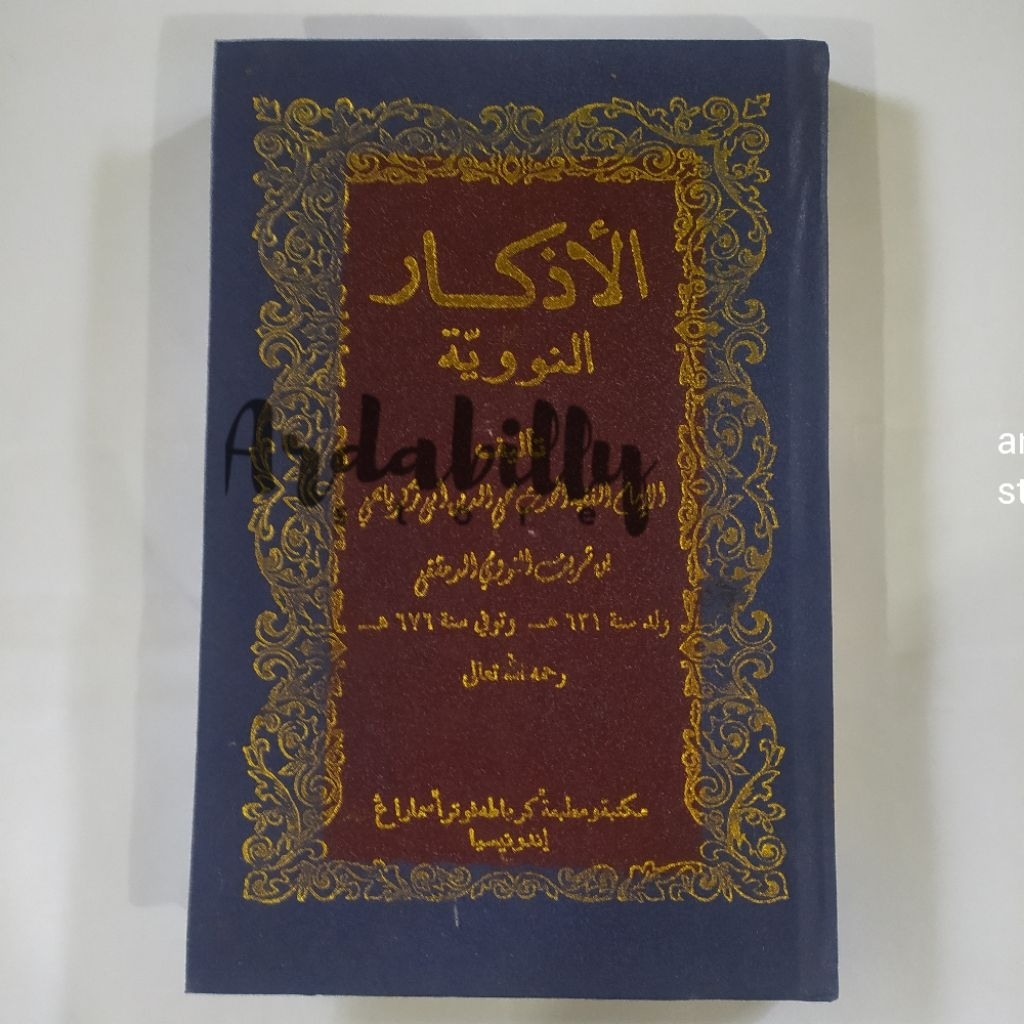 الأذكار
النوويّة
تأليف
الإمام الفقيه المحدث محي الدين أبي زكريا يحيى
بن شرف النووي الدمشقي
ولد سنة ٦٣١ هـ وتوفي سنة ٦٧٦ هـ
رحمه الله تعالى
مكتبة ومطبعة كرياطه فوترا سماراڠ
إندونيسيا
Ardabilly
store
ar
st